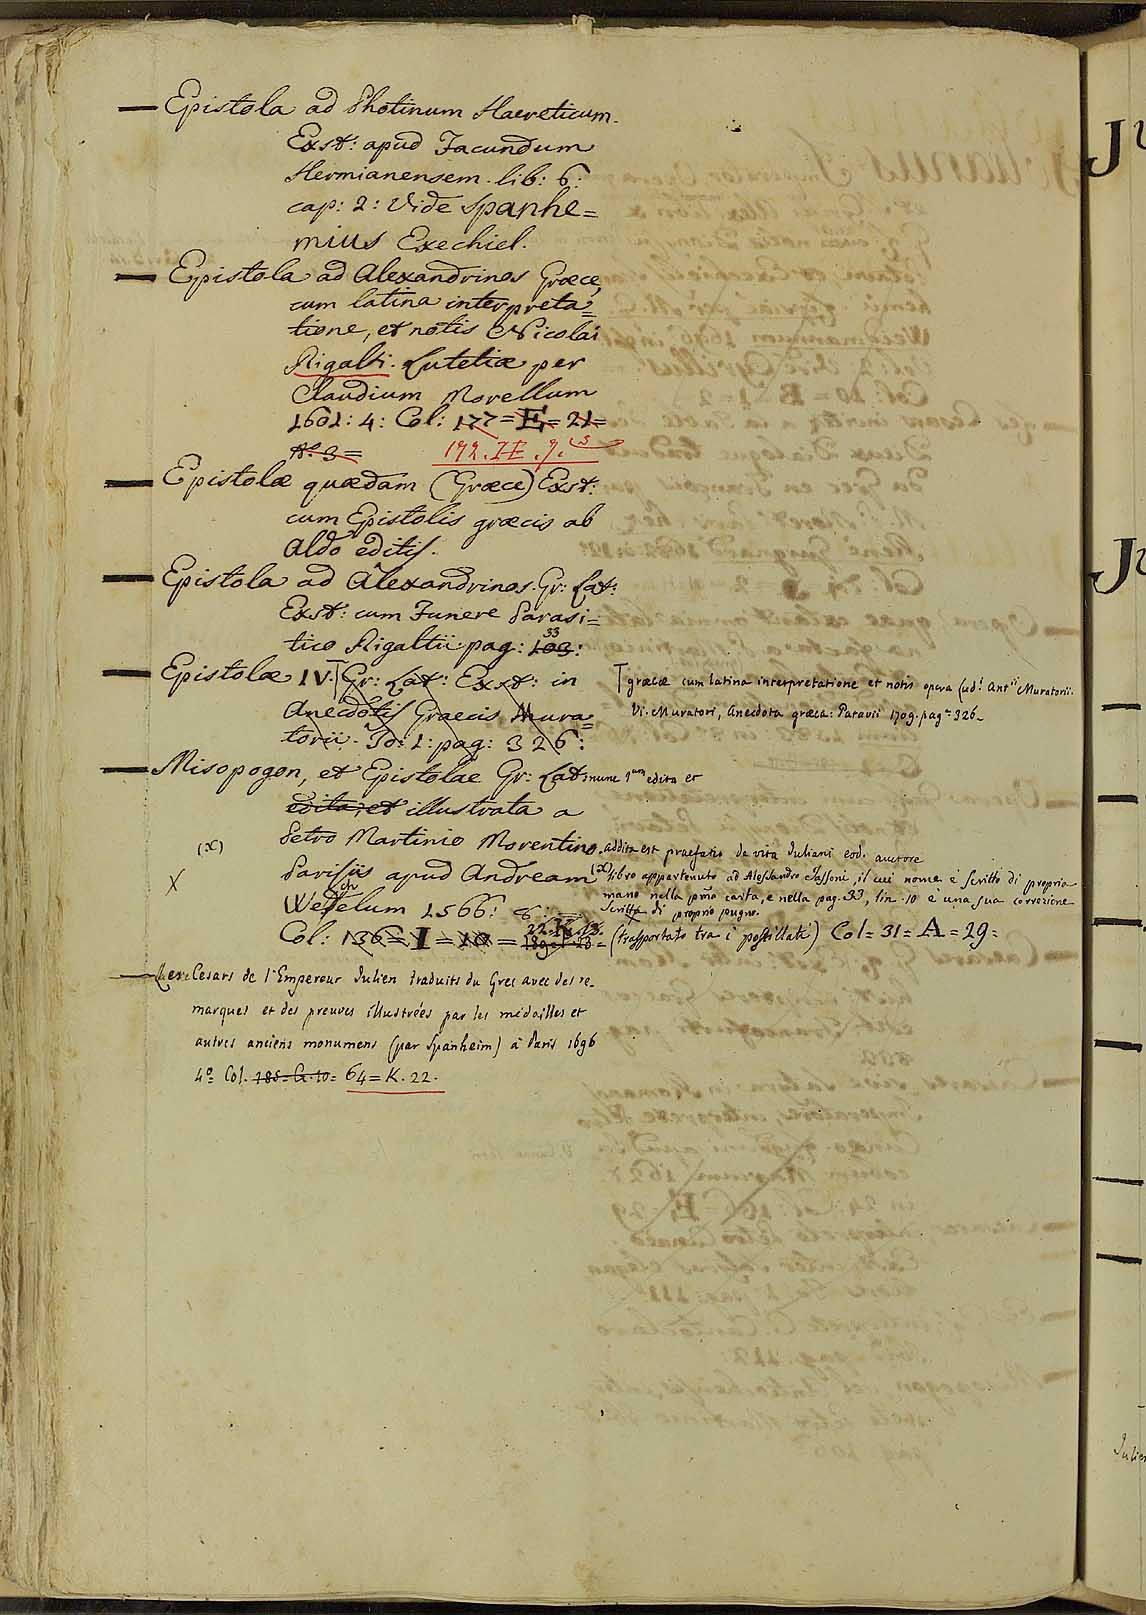 — Epistola ad Photinum Haereticum.
Exst: apud Facundum
Hermianensem. lib: 6:
cap: 2: Vide Spanhe=
mius Exechiel.
— Epistola ad Alexandrinos Græce,
cum latina interpreta=
tione, et notis Nicolai
Rigalti. Lutetiæ per
Claudium Morellum
1601: 4: Col: 177 = E = 21=
N.º 3 = 192. IE. 7.
— Epistolæ quædam (Græce) Exst:
cum Epistolis græcis ab
Aldo editis.
— Epistola ad Alexandrinos. Gr: Lat:
Exst: cum Funere Parasi=
tico Rigaltii pag: 103: 33
— Epistolæ IV. Gr: Lat: Exst: in
Anecdotis Graecis Mura=
torii. To: 1: pag: 326:
græcæ cum latina interpretatione et notis opera Antii Muratorii.
Vi. Muratori, Anecdota græca: Patavii 1709. pag. 326.
— Misopogon, et Epistolae Gr: Lat: nunc 1um edita et
edita, et illustrata a
Petro Martinio Morentino. addita est praefatio de vita Juliani eod. auctore
(x)
Parisiis apud Andream
X
Wechelum 1566: 8: =
(x) libro appartenuto ad Alessandro Tassoni, il cui nome è scritto di propria
mano nella pma carta, e nella pag. 33, lin. 10 è una sua correzione
scritta di proprio pugno.
Col: 136 = I = 10 = 22. K. 13. (trasportato tra i postillati) Col = 31 = A = 29 =
— Les Cesars de l'Empereur Julien traduits du Grec avec des re-
marques et des preuves illustrées par les médailles et
autres anciens monumens (par Spanheim) à Paris 1696
4º Col. 185 = G. 10 = 64 = K. 22.